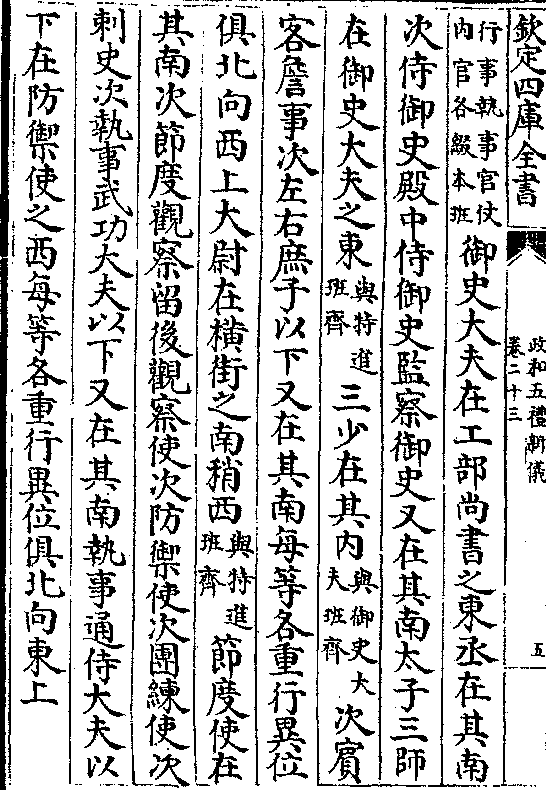 欽定四庫全書
政和五禮新儀
卷二十三
五
行事執事官仗
内官各綴本班
御史大夫在工部尚書之東丞在其南
次侍御史殿中侍御史監察御史又在其南太子三師
在御史大夫之東與特進班齊三少在其内與御史大夫班齊次賓
客詹事次左右庶子以下又在其南每等各重行異位
俱北向西上大尉在横街之南稍西與特進班齊節度使在
其南次節度觀察留後觀察使次防禦使次團練使次
刺史次執事武功大夫以下又在其南執事通侍大夫以
下在防禦使之西每等各重行異位俱北向東上